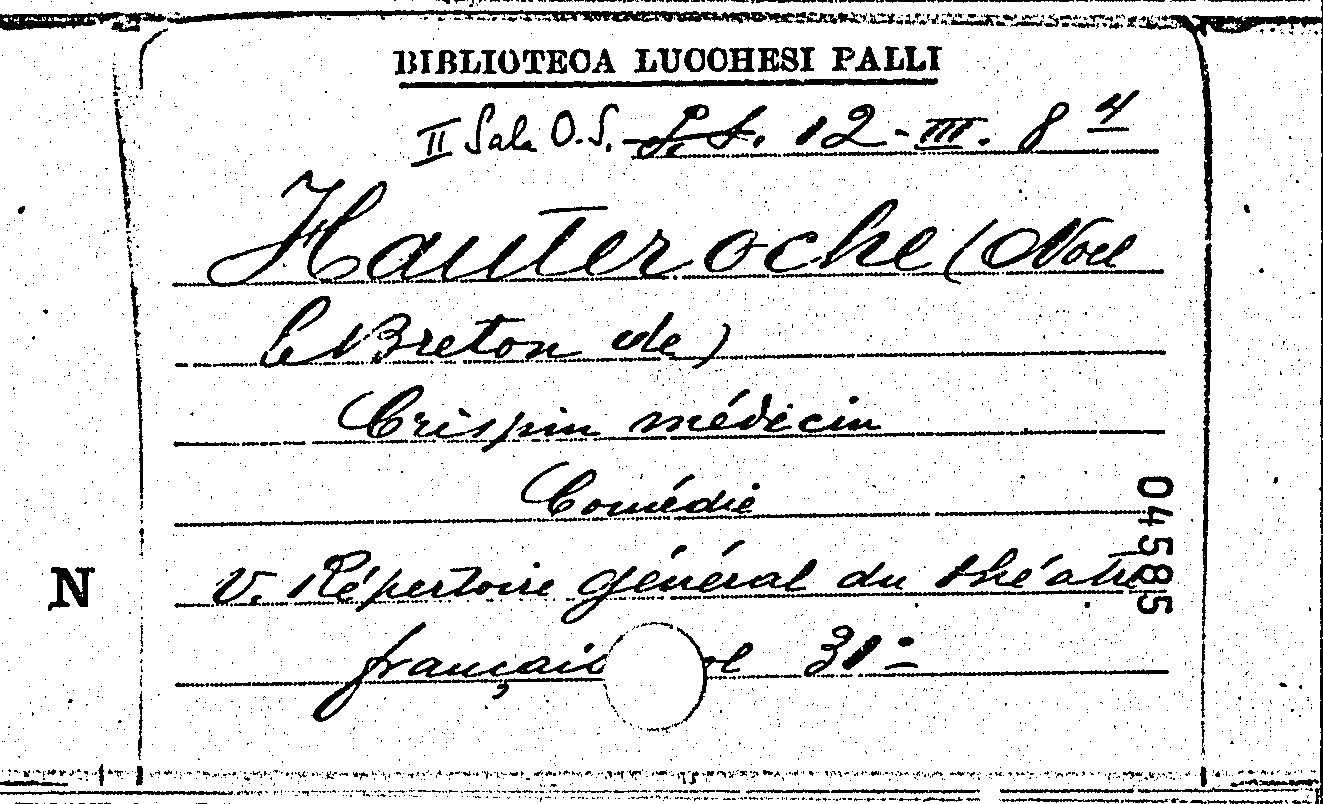 BIBLIOTECA LUCCHESI PALLI
II Sala O.S. S.S. 12-III. 8 4
Hauteroche (Noel
le Breton de)
Crispin médicin
Comédie
04585
N
v. Répertoire général du théatre
français 31º